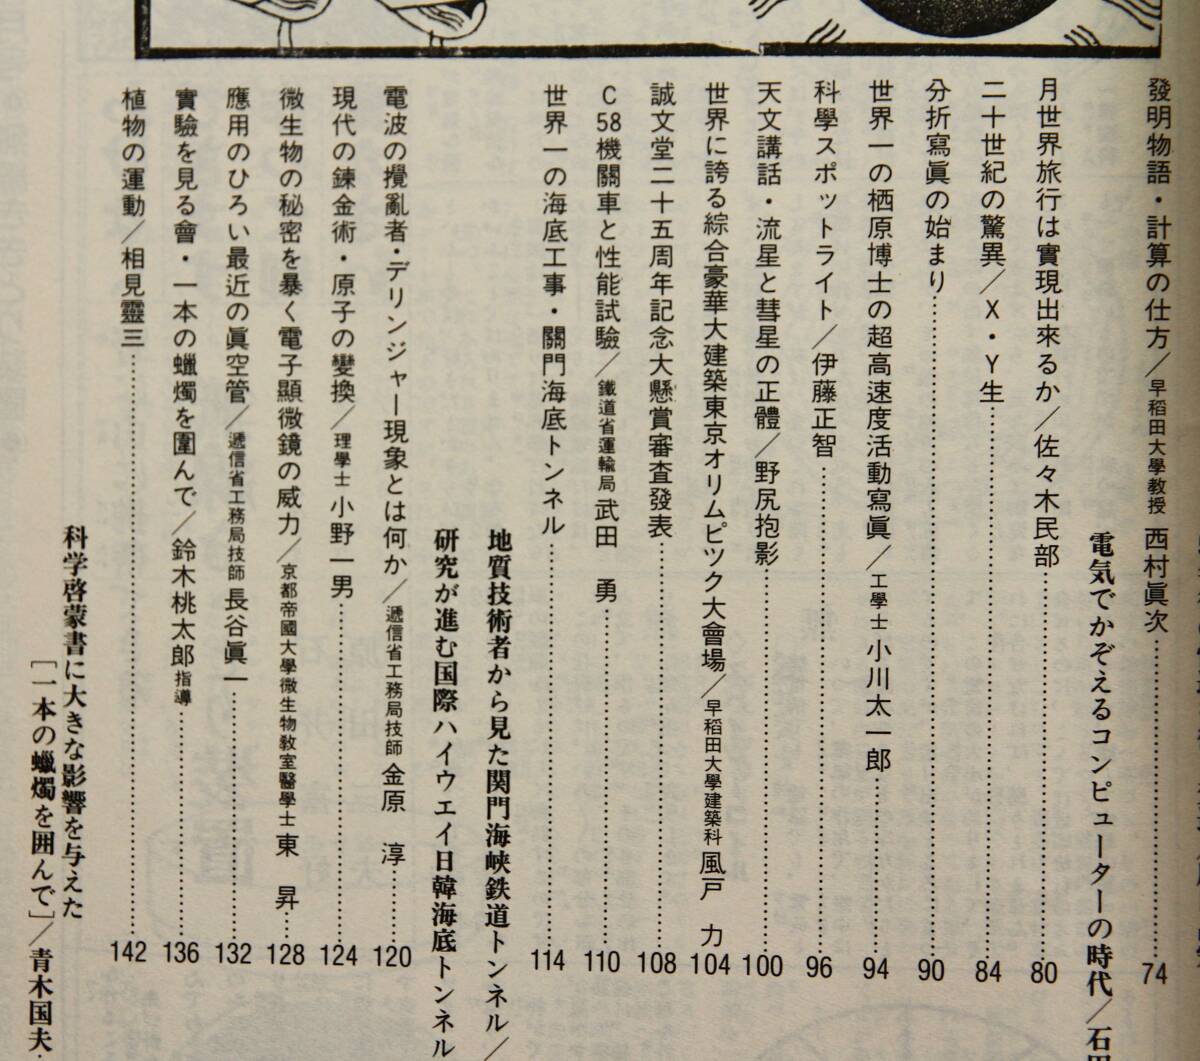 發明物語・計算の仕方／早稻田大學教授 西村眞次……74
電気でかぞえるコンピューターの時代／石田
月世界旅行は實現出來るか／佐々木民部……80
二十世紀の驚異／X・Y生……84
分折寫眞の始まり……90
世界一の栖原博士の超高速度活動寫眞／工學士 小川太一郎……94
科學スポットライト／伊藤正智……96
天文講話・流星と彗星の正體／野尻抱影……100
世界に誇る綜合豪華大建築東京オリムピツク大會場／早稻田大學建築科 風戸 力……104
誠文堂二十五周年記念大懸賞審査發表……108
C58機關車と性能試驗／鐵道省運輸局 武田 勇……110
世界一の海底工事・關門海底トンネル……114
地質技術者から見た関門海峡鉄道トンネル／
研究が進む国際ハイウエイ日韓海底トンネル
電波の攪亂者・デリンジャー現象とは何か／遞信省工務局技師 金原 淳……120
現代の錬金術・原子の變換／理學士 小野一男……124
微生物の秘密を暴く電子顯微鏡の威力／京都帝國大學微生物敎室醫學士 東 昇……128
應用のひろい最近の眞空管／遞信省工務局技師 長谷眞一……132
實驗を見る會・一本の蠟燭を圍んで／鈴木桃太郎指導……136
植物の運動／相見靈三……142
科学啓蒙書に大きな影響を与えた
［一本の蠟燭を囲んで］／青木国夫・